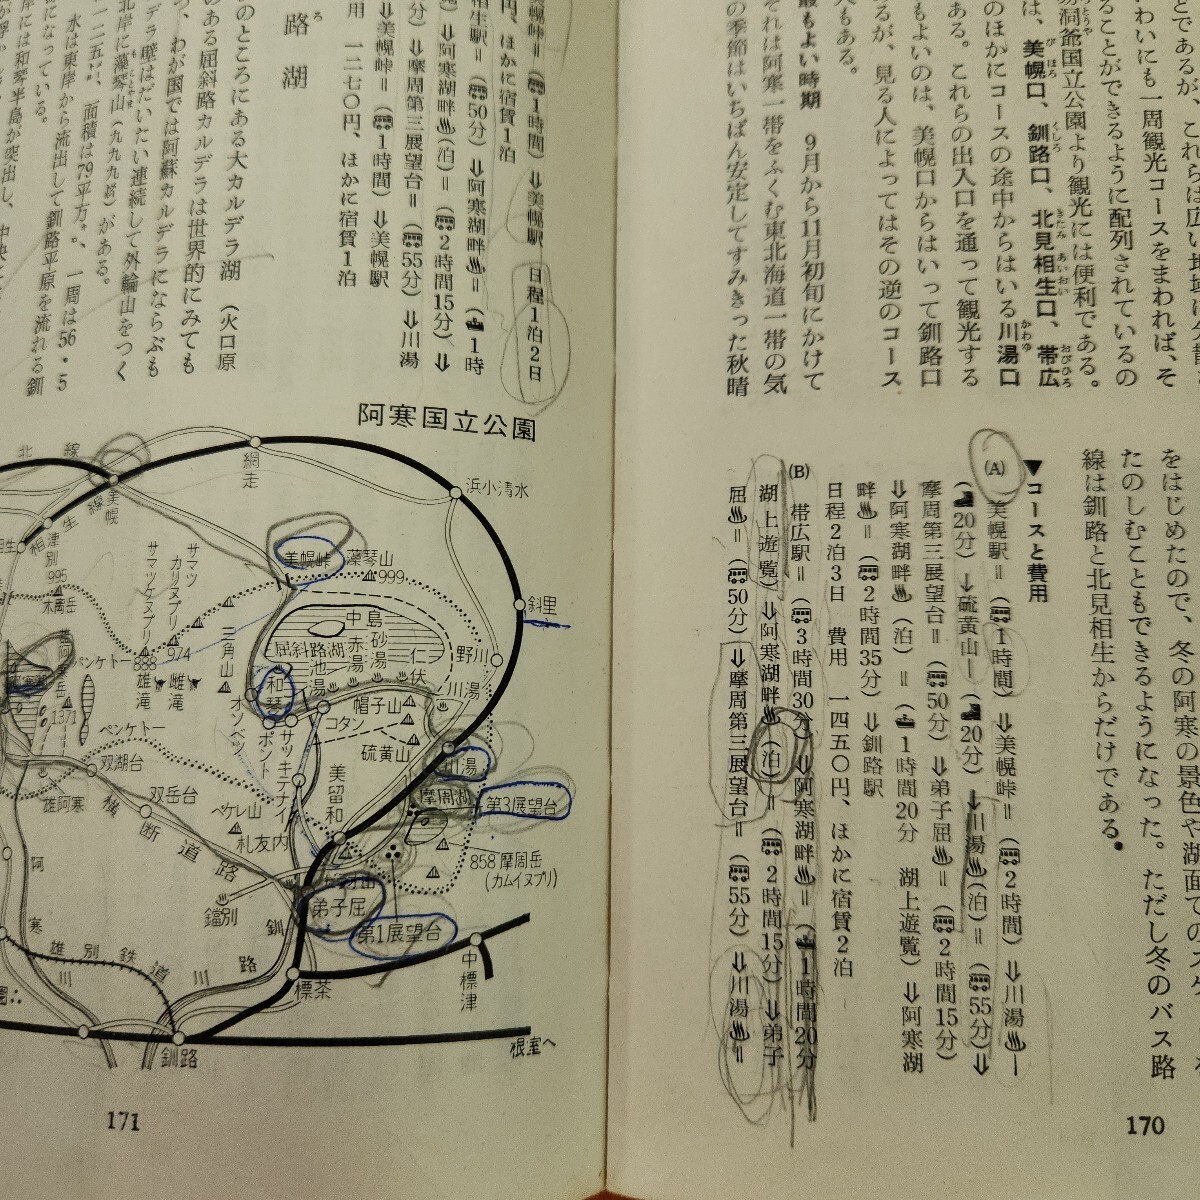 とであるが、これらは広い地域に
わいにも一周観光コースをまわれば、そ
ることができるように配列されているの
洞爺国立公園より観光には便利である。
は、美幌口、釧路口、北見相生口、帯広
のほかにコースの途中からはいる川湯口
ある。これらの出入口を通って観光する
もよいのは、美幌口からはいって釧路口
あるが、見る人によってはその逆のコース
もある。
最もよい時期　9月から11月初旬にかけて
それは阿寒一帯をふくむ東北海道一帯の気
の季節はいちばん安定してすみきった秋晴
をはじめたので、冬の阿寒の景色や湖面での
たのしむこともできるようになった。ただし冬のバス路
線は釧路と北見相生からだけである。
▼コースと費用
(A)　美幌駅＝(1時間)⇓美幌峠＝(2時間)⇓川湯—
(20分)↓硫黄山—(20分)↓川湯(泊)＝(55分)⇓
摩周第三展望台＝(50分)⇓弟子屈＝(2時間15分)
⇓阿寒湖畔(泊)＝(1時間20分　湖上遊覧)⇓阿寒湖
畔＝(2時間35分)⇓釧路駅
日程2泊3日　費用　一四五〇円、ほかに宿賃2泊
(B)　帯広駅＝(3時間30分)⇓阿寒湖畔＝(1時間20分
湖上遊覧)⇓阿寒湖畔(泊)＝(2時間15分)⇓弟子
屈＝(50分)⇓摩周第三展望台＝(55分)⇓川湯＝
170
美幌峠＝(1時間)⇓美幌駅　日程1泊2日
円、ほかに宿賃1泊
相生駅＝(50分)⇓阿寒湖畔＝(1時
⇓阿寒湖畔(泊)＝(2時間15分)⇓
⇓摩周第三展望台＝(55分)⇓川湯
⇓美幌峠＝(1時間)⇓美幌駅
一二七〇円、ほかに宿賃1泊
路湖
のところにある大カルデラ湖（火口原
のある屈斜路カルデラは世界的にみても
つ、わが国では阿蘇カルデラにならぶも
デラ壁はだいたい連続して外輪山をつく
北岸に藻琴山（九九九）がある。
面積は79平方、一周は56・5
水は東岸から流出して釧路平原を流れる釧
になっている。
には和琴半島が突出し、中央に
阿寒国立公園
網走
浜小清水
美幌
美幌峠
藻琴山
999
斜里
中島
屈斜路湖
砂湯
赤湯
池湯
仁伏
野川
川湯
和琴
帽子山
コタン
硫黄山
オンベツ
ポント
サッキテナイ
美留和
川湯
摩周湖
第3展望台
858摩周岳
(カムイヌプリ)
弟子屈
第1展望台
標茶
中標津
釧路
根室へ
津別
相生
995
木周岳
サマッケヌプリ
サマッカリヌプリ
974
888
三角山
雄滝
雌滝
パンケトー
ペンケトー
雄阿寒岳
1371
雄阿寒
双湖台
双岳台
横断道路
ペケレ山
札友内
鐺別
雄別鉄道
釧路川
阿寒川
171